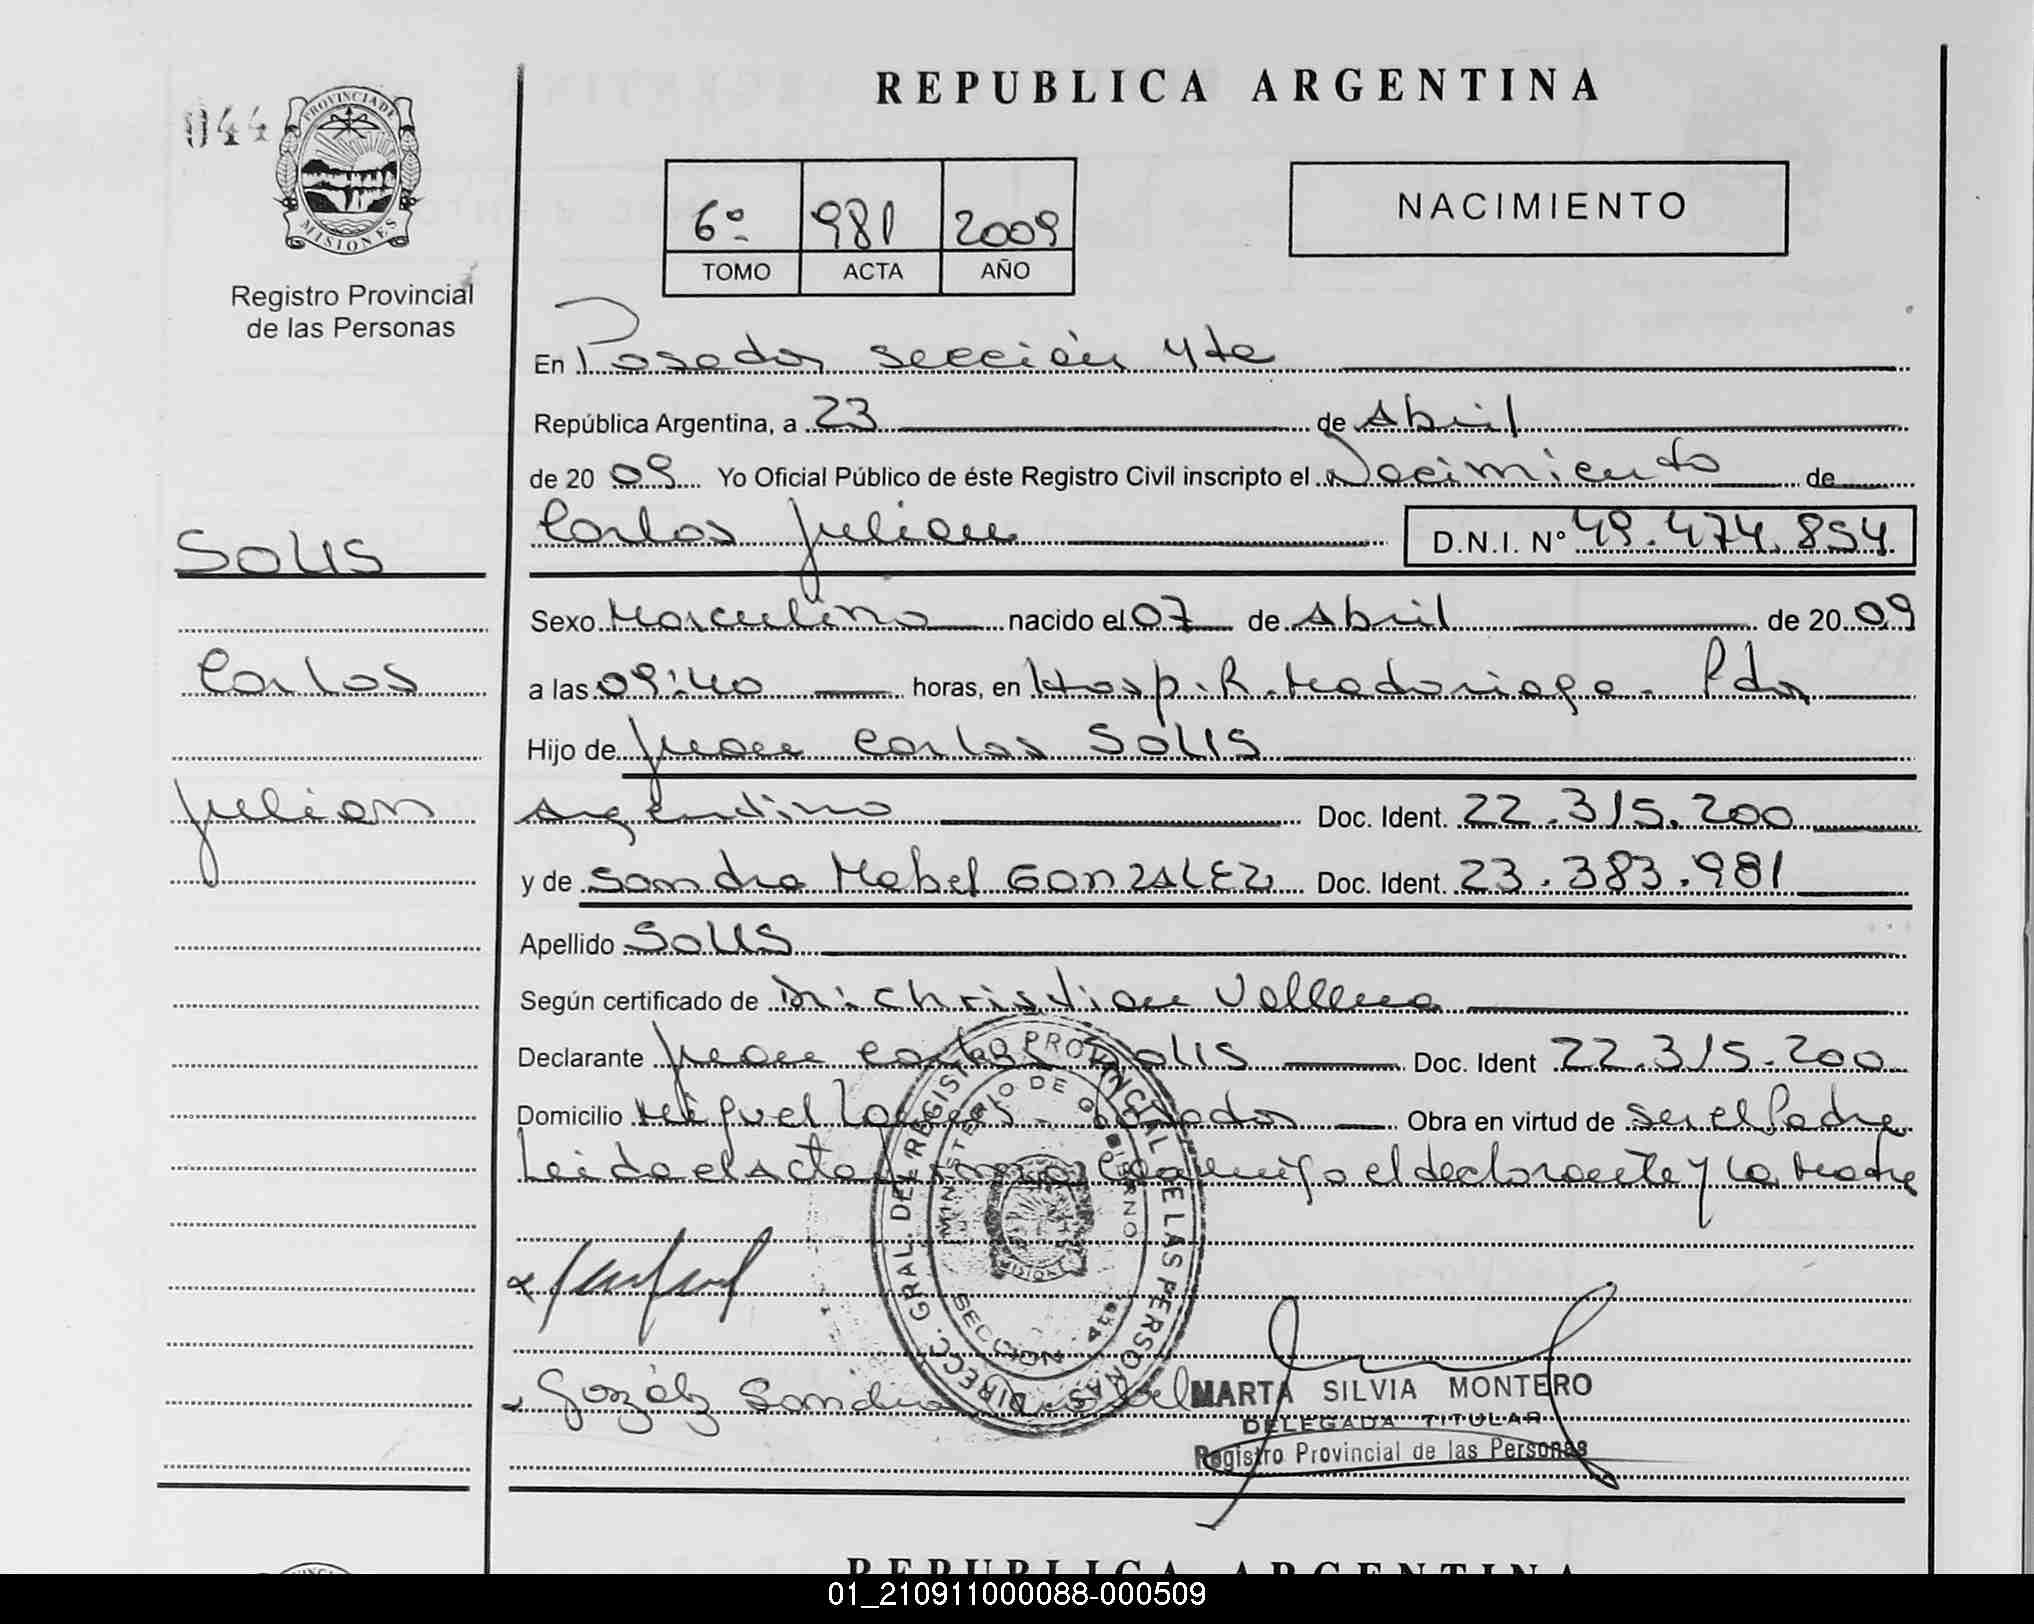 REPUBLICA ARGENTINA
044
PROVINCIA DE
MISIONES
Registro Provincial
de las Personas
6º 981 2009
TOMO ACTA AÑO
NACIMIENTO
En Posadas sección 4ta
República Argentina, a 23 de Abril
de 20 09 Yo Oficial Público de éste Registro Civil inscripto el Nacimiento de
Carlos Julian D.N.I. Nº 49.474.854
SOLIS
Carlos
Julian
Sexo Masculino nacido el 07 de Abril de 20 09
a las 09:40 horas, en Hosp. R. Madariaga - Pdas
Hijo de Juan Carlos SOLIS
Argentino Doc. Ident. 22.315.200
y de Sandra Mabel GONZALEZ Doc. Ident. 23.383.981
Apellido SOLIS
Según certificado de Dr. Christian
Declarante Juan Carlos Solis Doc. Ident 22.315.200
Domicilio Miguel Posadas Obra en virtud de ser el Padre
Leida el Acta firma conmigo el declarante y la Madre
DIRECC. GRAL. DEL REGISTRO PROVINCIAL DE LAS PERSONAS
MINISTERIO DE GOBIERNO
MISIONES
SECCION 4ta
Gozález Sandra Mabel
MARTA SILVIA MONTERO
DELEGADA TITULAR
Registro Provincial de las Personas
REPUBLICA ARGENTINA
01_210911000088-000509